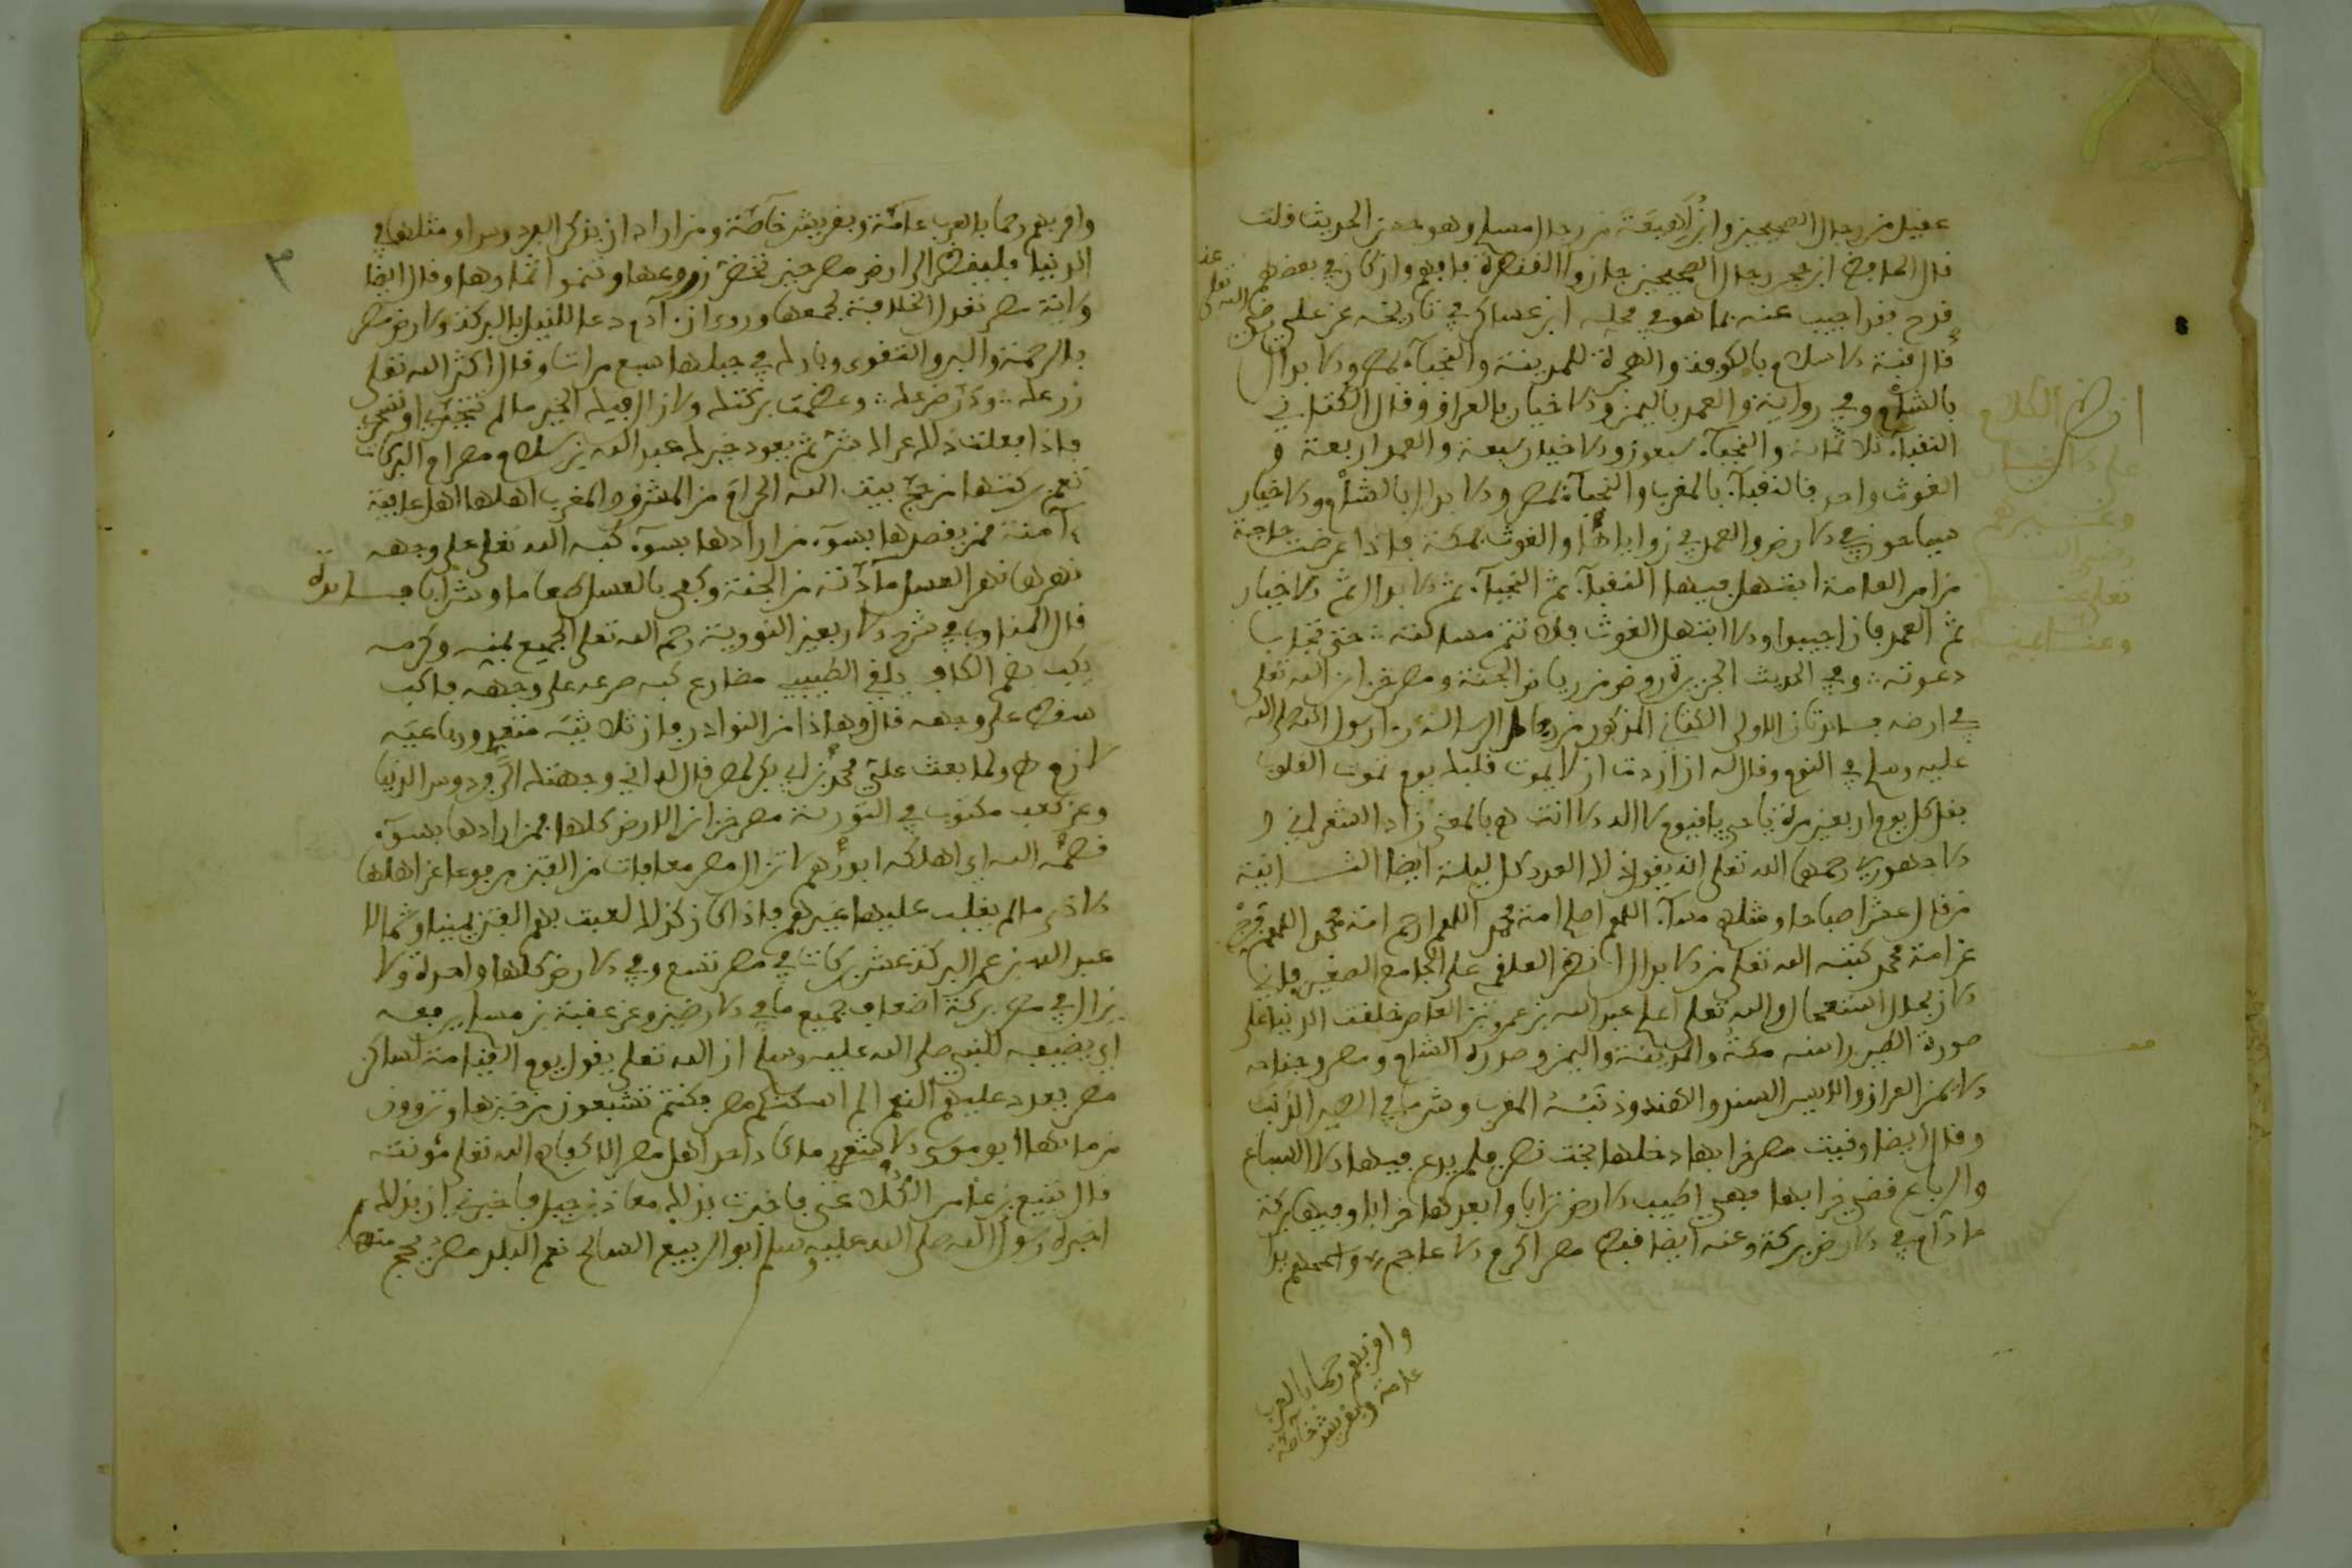 عقيل من رجال الصحيحين وابن لَهِيعَة من رجال مسلم وهو حسن الحديث قلت
قال الحافظ ابن حجر رجال الصحيحين جازوا القنطرة فافهم وان كان في بعضهم
قدح فقد اجيب عنه بما هو في محله ابن عساكر في تاريخه عن علي رضي الله تعلى عنه
قال قبة الاسلام بالكوفة والهجرة للمدينة والنجباء بمصر والابدال
بالشام وفي رواية والعمد باليمن والاخيار بالعراق وقال الكتاني
النقباء ثلاثمائة والنجباء سبعون والاخيار سبعة والعمد اربعة و
الغوث واحد فالنقباء بالمغرب والنجباء بمصر والابدال بالشام والاخيار
سياحون في الارض والعمد في زواياها والغوث بمكة فاذا عرضت حاجة
من امر العامة ابتهل فيها النقباء ثم النجباء ثم الابدال ثم الاخيار
ثم العمد فان اجيبوا والا ابتهل الغوث فلا تتم مسالته حتى تجاب
دعوته وفي الحديث الجيزة روض من رياض الجنة ومصر خزائن الله تعلى
في ارضه فائدتان الاولى الكتاني المذكور من رجال الرسالة راى رسول الله صلى الله
عليه وسلم في النوم وقال له ان اردت ان لا يموت قلبك يوم تموت القلوب
فقل كل يوم اربعين مرة يا حي يا قيوم لا اله الا انت هـ بالمعنى زاد الشعراني و
الاجهوري رحمهما الله تعلى انه يقول ذلك العدد كل ليلة ايضا الثــانية
من قال عشرا صباحا ومثلها مساء اللهم اصلح امة محمد اللهم ارحم امة محمد اللهم فرج
عن امة محمد كتبه الله تعلى من الابدال انظر العلقمي على الجامع الصغير فاني
الان بحال استعجال والله تعلى اعلم عبد الله بن عمرو بن العاص خلقت الدنيا على
صورة الطير راسه مكة والمدينة واليمن وصدره الشام ومصر وجناحه
الايمن العراق والايسر السند والهند وذنبه المغرب وشر ما في الطير الذنب
وقال ايضا وقيت مصر خرابها دخلها بخت نصر فلم يدع فيها الا السباع
والرباع فمضى خرابها فهي اطيب الارض ترابا وابعدها خرابا وفيها بركة
ما دام في الارض بركة وعنه ايضا قبط مصر اكرم الاعاجم واسمحهم يدا
وافربهم رحما بالعرب
عامة وبقريش خاصة
انظر الكلام
على الاخيــار
وغــيرهم
رضي الله
تعلى عنهم
وعنا اميــن
٣
وافربهم رحما بالعرب عآمّة وبقريش خآصّة ومن اراد ان يذكر الفردوس او مثلها في
الدنيا فلينظر الى ارض مصر حين تخضر زروعها وتنمو اثمارها وقال ايضا
ولاية مصر تعدل الخلافة بجمعها وروي ان آدم دعا للنيل بالبركة ولارض مصر
بالرحمة والبر والتقوى وبارك في جبلها سبع مرات وقال اكثر الله تعلى
زرعك ودر ضرعك وعظمت بركتك ولا زال فيك الخير ما لم تتجبري او تتكبري
فاذا فعلت ذلك عراك شر ثم يعود خيرك عبد الله بن سلام مصر ام البركات
تعم بركتها من حج بيت الله الحرام من المشرق والمغرب اهلها اهل عافية
آمنة ممن يقصدها بسوء من ارادها بسوء كبه الله تعلى على وجهه
نهرها نهر العسل مآدّته من الجنة وكفى بالعسل طعاما وشرابا فــائدة
قال المناوي في شرح الاربعين النووية رحم الله تعلى الجميع بمنه وكرمه
يكب بضم الكاف يلقي الطيبي مضارع كبه صرعه على وجهه فاكب
سقط على وجهه قال وهذا من النوادر فان ثلاثيه متعد ورباعيه
لازم هـ ولما بعث علي محمد بن ابي بكر لمصر قال له اني وجهتك الى فردوس الدنيا
وعن كعب مكتوب في التورية مصر خزائن الارض كلها فمن ارادها بسوء
قصمه الله اي اهلكه ابو رُهم لا تزال مصر معافات من الفتن مرفوعا عن اهلها
الاذى ما لم يغلب عليها غيرهم فاذا كان كذلك لعبت بهم الفتن يمينا وشمالا
عبد الله بن عمر البركة عشر بركات في مصر تسع وفي الارض كلها واحدة ولا
يزال في مصر بركة اضعاف جميع ما في الارضين وعن عقبة بن مسلم يرفعه
اي يضيفه للنبي صلى الله عليه وسلم ان الله تعلى يقول يوم القيامة لساكن
مصر يعدد عليهم النعم الم اسكنكم مصر فكنتم تشبعون من خبزها وتروون
من مائها ابو موسى الاشعري ما كاد احد اهل مصر الا كفاهم الله تعلى مؤنته
قال تبيع بن عامر الكُلاعي فاخبرت بذلك معاذ بن جبل فاخبرني ان بذلك
اخبره رسول الله صلى الله عليه وسلم ابو الربيع السائح نعم البلد مصر يحج منها